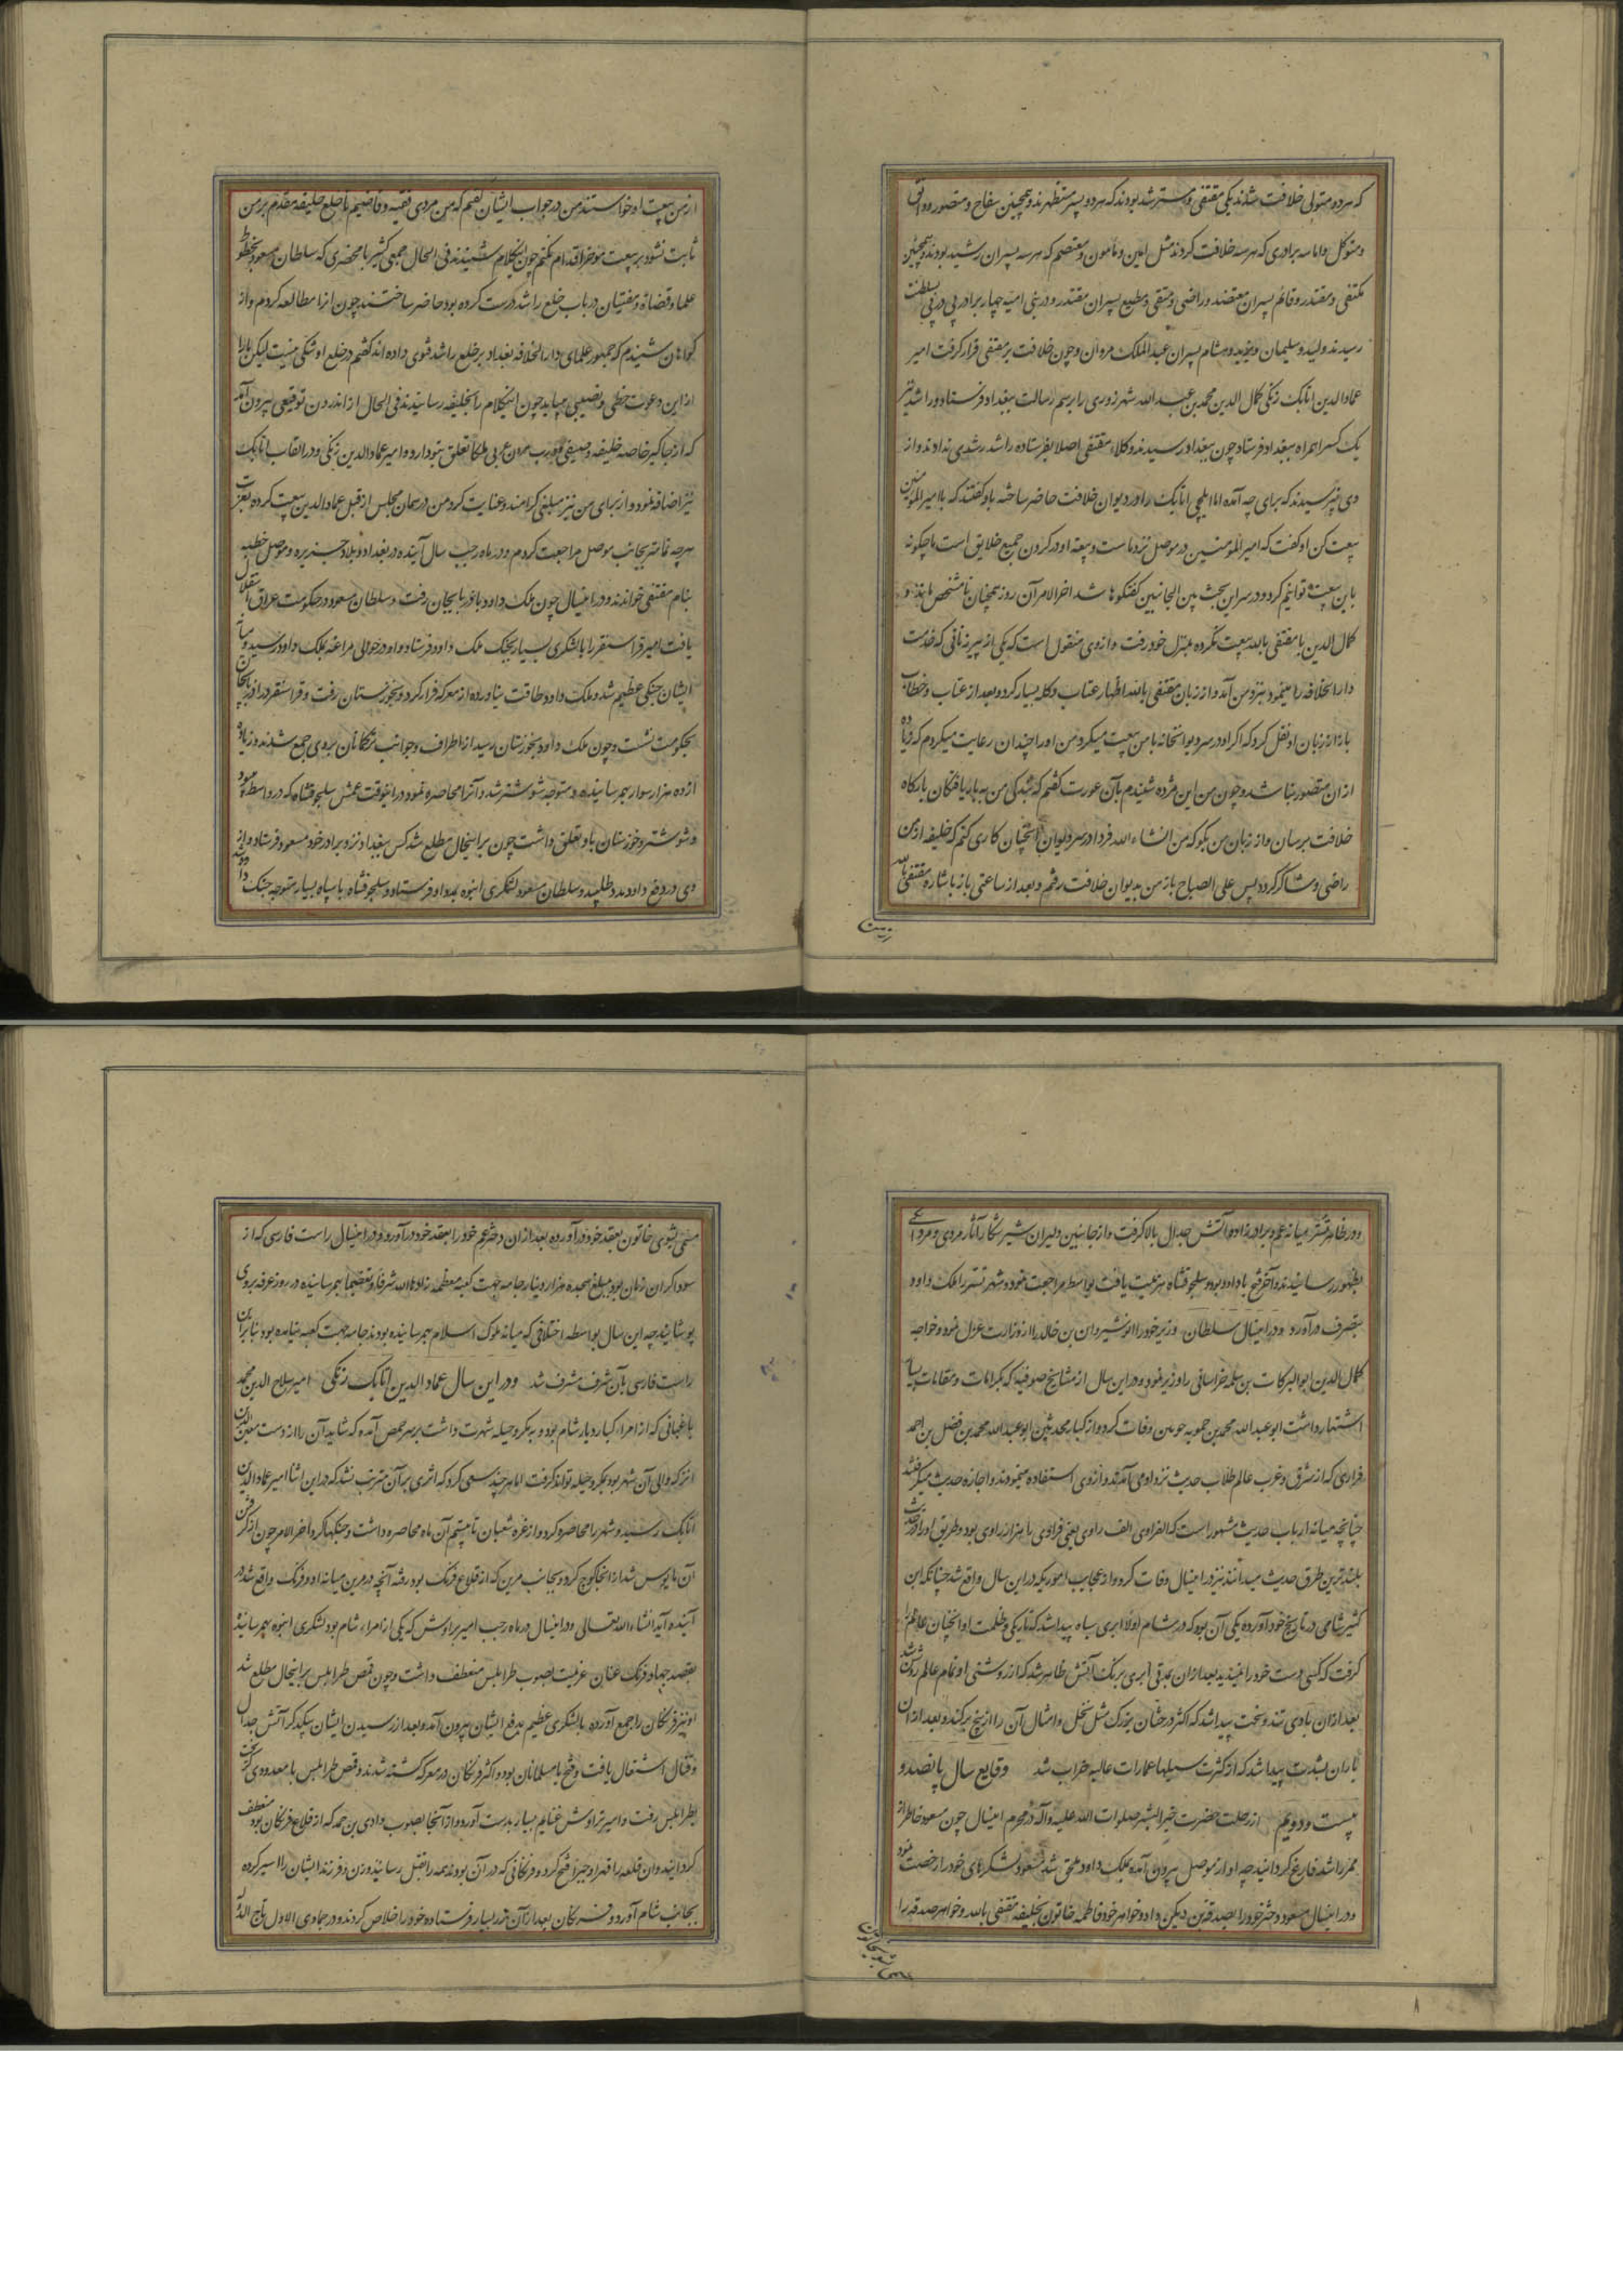 که هر دو متولی خلافت شدند یکی مقتفی و مسترشد بودند که هر دو پسر مستظهرند و همچنین سفاح و منصور و واثق
و متوکل و اما سه برادری که هر سه خلافت کردند مثل امین و مامون و معتصم که هر سه پسران رشید بودند و همچنین
مکتفی و مقتدر و قاهر پسران معتضد و راضی و متقی و مطیع پسران مقتدر و در بنی امیه چهار برادر پی در پی بسلطنت
رسیدند ولید و سلیمان و یزید و هشام پسران عبد الملک مروان و چون خلافت بر مقتفی قرار گرفت امیر
عماد الدین اتابک زنکی کمال الدین محمد بن عبد الله شهرزوری را برسم رسالت ببغداد فرستاد و راشد نیز
یک کس را همراه ببغداد فرستاد چون ببغداد رسیدند وکلاء مقتفی اصلا بفرستاده راشد رشدی ندادند و از
وی نپرسیدند که برای چه آمده اما ایلچی اتابک را در دیوان خلافت حاضر ساخته باو کفتند که با امیر المؤمنین
بیعت کن او کفت که امیر المؤمنین در موصل نزد ماست و بیعت او در کردن جمیع خلایق است ما چکونه
با این بیعت توانیم کرد و در سر این بحث بین الجانبین کفتکوها شد اخر الامر آن روز همچنان نامشخص ماند و
کمال الدین با مقتفی بالله بیعت نکرده بمنزل خود رفت و از وی منقول است که یکی از پیره زنانی که خدمت
دار الخلافه را مینمود بنزد من آمد و از زبان مقتفی بالله اظهار عتاب و کله بسیار کرد و بعد از عتاب و خطاب
باز از زبان او نقل کرد که اکر او در سر دیوانخانه با من بیعت میکرد من او را چندان رعایت میکردم که زیاده
از آن متصور نباشد و چون من این مژده شنیدم بآن عورت کفتم که بندکی من به باریافتکان بارکاه
خلافت برسان و از زبان من بکو که من انشاء الله فردا در سر دیوان آنچنان کاری کنم که خلیفه از من
راضی و شاکر کردد پس علی الصباح باز من بدیوان خلافت رفتم و بعد از ساعتی باز باشاره مقتفی بالله
از من بیعت او خواستند من در جواب ایشان کفتم که من مردی فقیه و قاضیم تا خلع خلیفه مقدم بر من
ثابت نشود بر بیعت مؤخر اقدام نکنم چون اینکلام شنیدند فی الحال جمعی کثیر با محضری که سلطان مسعود بخطوط
علما و قضاة و مفتیان در باب خلع راشد درست کرده بود حاضر ساختند چون انرا مطالعه کردم و از
کواهان شنیدم که جمهور علمای دار الخلافه بغداد بر خلع راشد فتوی داده اند کفتم در خلع او شکی نیست لیکن ما را
از این دعوت حظی و نصیبی میباید چون اینکلام را بخلیفه رسانیدند فی الحال از اندرون توقیعی بیرون آمد
که از جاکیر خاصه خلیفه و درب هرون بملکا تعلق بتو دارد و امیر عماد الدین زنکی و در القاب اتابک
نیز اضافه نمود و از برای من نیز مبلغی کرامند عنایت کرد من در همان مجلس از قبل عماد الدین بیعت کرده بعزت
هر چه تمامتر بجانب موصل مراجعت کردم و در ماه رجب سال آینده در بغداد و بلاد جزیره و موصل خطبه
بنام مقتفی خواندند و در اینسال چون ملک داود باذربایجان رفت و سلطان مسعود در حکومت عراق استقلال
یافت امیر قراسنقر را با لشکری بسیار بجنک ملک داود فرستاد و او در حوالی مراغه بملک داود رسید و میان
ایشان جنکی عظیم شد و ملک داود طاقت نیاورده از معرکه فرار کرد و بخوزستان رفت و قراسنقر در اذربایجان
بحکومت نشست و چون ملک داود بخوزستان رسید از اطراف و جوانب ترکمانان بر وی جمع شدند و زیاده
از ده هزار سوار بهم رسانیده و متوجه شوشتر شد و آنرا محاصره نمود در اینوقت عمش سلجوقشاه که در واسط بود
و شوشتر و خوزستان باو تعلق داشت چون بر اینحال مطلع شد کس ببغداد نزد برادر خود مسعود فرستاد و از
وی در دفع داود مدد طلبید و سلطان مسعود لشکری انبوه بمدد او فرستاد و سلجوقشاه با سپاه بسیار متوجه جنک داود شد
و در ظاهر تستر میانه عم و برادرزاده آتش جدال بالا کرفت و از جانبین دلیران شیر شکار آثار مردی و مردانکی
بظهور رسانیدند و آخر فتح با داود بود و سلجوقشاه هزیمت یافت بواسط مراجعت نمود و شهر تستر را ملک داود
بتصرف درآورد و در اینسال سلطان وزیر خود را انوشیروان بن خالد را از وزارت عزل نمود و خواجه
کمال الدین ابو البرکات بن سلمه خراسانی را وزیر نمود و در این سال از مشایخ صوفیه که بکرامات و مقامات بسیار
اشتهار داشت ابو عبد الله محمد بن حمویه جوینی وفات کرد و از کبار محدثین ابو عبد الله محمد بن فضل بن احمد
فراوی که از شرق و غرب عالم طلاب حدیث نزد او می آمدند و از وی استفاده مینمودند و اجازه حدیث میکرفتند
چنانچه میانه ارباب حدیث مشهور است که الفراوی الف راوی یعنی فراوی را هزار راوی بود و طریق او را در حدیث
بلندترین طرق حدیث میدانند نیز در اینسال وفات کرد و از عجایب اموریکه در این سال واقع شد چنانکه ابن
کثیر شامی در تاریخ خود آورده یکی آن بود که در شام اولا ابری سیاه پیدا شد که تاریکی و ظلمت او انچنان عالم را
کرفت که کسی دست خود را نمیدید بعد از ان بمدتی ابری برنک آتش ظاهر شد که از روشنی او تمام عالم روشن شد
بعد از ان بادی تند و سخت پیدا شد که اکثر درختان بزرک مثل نخل و امثال آن را از بیخ برکند و بعد از ان
باران بشدت پیدا شد که از کثرت سیلها عمارات عالیه خراب شد وقایع سال پانصد و
بیست و دویم از رحلت حضرت خیر البشر صلوات الله علیه و آله در محرم اینسال چون مسعود خاطر از
ممر راشد فارغ کردانید چه او از موصل بیرون آمده بملک داود ملحق شد مسعود لشکرهای خود را رخصت نمود
و در اینسال مسعود دختر خود را بصدقه بن دبیس داد و خواهر خود فاطمه خاتون بخلیفه مقتفی بالله و خواهر صدقه را
خاتون بعقد خود درآورده بعد از ان دختر عم خود را بعقد خود درآورد و در اینسال راست فارسی که از
سوداکران زمان بود مبلغ هجده هزار دینار جامه جهت کعبه معظمه زادها الله شرفا و تعظیما بهم رسانیده در روز عرفه بر وی
پوشانید چه این سال بواسطه اختلافی که میانه ملوک اسلام بهم رسانیده بودند جامه جهت کعبه نیامده بود بنابراین
راست فارسی بآن شرف مشرف شد و در این سال عماد الدین اتابک زنکی امیر صلاح الدین محمد
باغیانی که از امراء کبار دیار شام بود و بمکر و حیله شهرت داشت بر سر حمص آمده که شاید آن را از دست معین الدین
انز که والی آن شهر بود بمکر و حیله تواند کرفت اما هر چند سعی کرد که اثری بر آن مترتب نشد که در این اثنا امیر عماد الدین
اتابک رسید و شهر را محاصره کرد و از غره شعبان تا بیستم آن ماه محاصره داشت و جنکها کرد آخر الامر چون از کرفتن
آن مایوس شد از انجا کوچ کرد و بجانب مرین که از قلاع فرنک بود رفته آنچه در مرین میانه او و فرنک واقع شد در
آینده آید انشاء الله تعالی و در اینسال در ماه رجب امیر بزاوش که یکی از امراء شام بود لشکری انبوه بهم رسانیده
بقصد جهاد فرنک عنان عزیمت بصوب طرابلس منعطف داشت و چون قمص طرابلس بر اینحال مطلع شد
او نیز فرنکان را جمع آورده با لشکری عظیم بدفع ایشان بیرون آمد و بعد از رسیدن ایشان بیکدیکر آتش جدال
و قتال اشتعال یافت و فتح با مسلمانان بود و اکثر فرنکان در معرکه کشته شدند و قمص طرابلس با معدودی کریخته
بطرابلس رفت و امیر بزاوش غنایم بسیار بدست آورد و از آنجا بصوب وادی بن حمر که از قلاع فرنکان بود منعطف
کردانید و ان قلعه را قهرا و جبرا فتح کرد و فرنکانی که در آن بودند همه را بقتل رسانید و زن و فرزند ایشان را اسیر کرده
بجانب شام آورد و فرنکان بعد از آن زر بسیار فرستاده خود را خلاص کردند و در جمادی الاول تاج الدوله